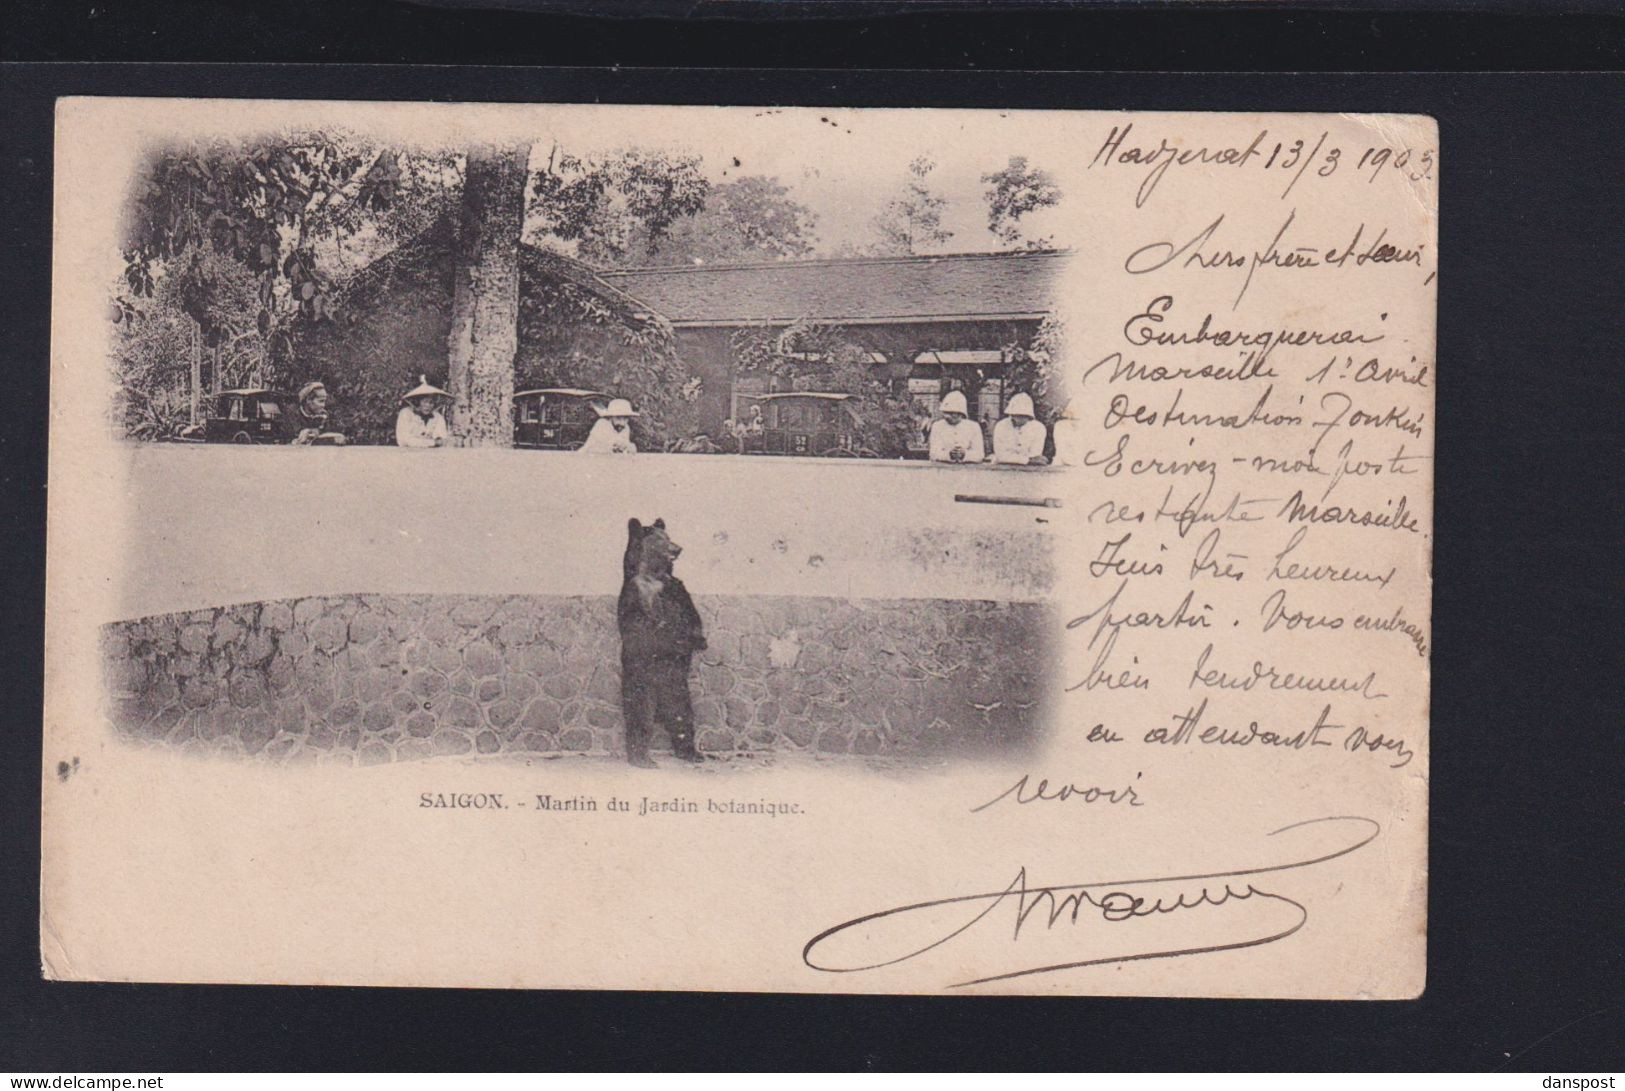 Hadjerat 13/3 1903
Chers frère et sœur,
Embarquerai
Marseille 1er Avril
Destination Tonkin
Ecrivez-moi poste
restante Marseille.
Suis très heureux
partir. Vous embrasse
bien tendrement
en attendant vous
revoir
SAIGON. - Martin du Jardin botanique.
delcampe.net
danspost